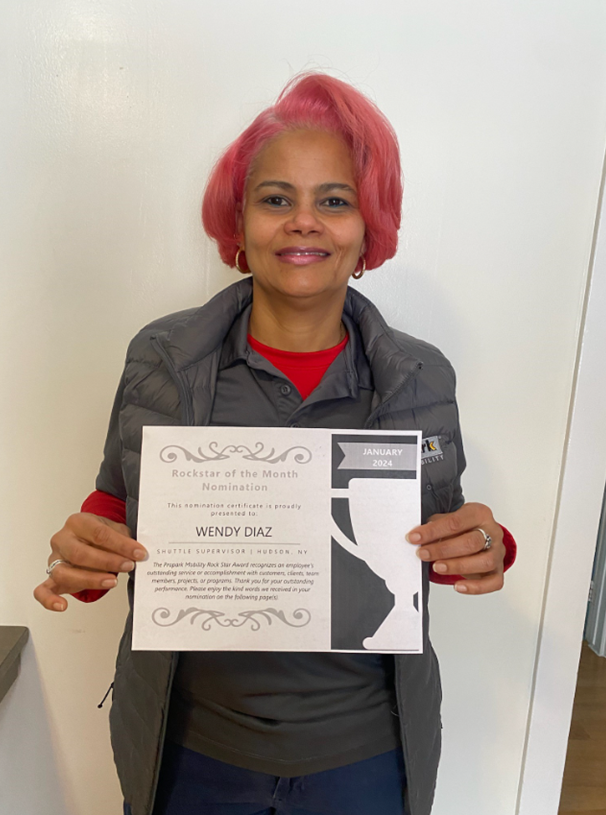 JANUARY
2024
Rockstar of the Month
Nomination
This nomination certificate is proudly
presented to:
WENDY DIAZ
SHUTTLE SUPERVISOR | HUDSON, NY
The Propark Mobility Rock Star Award recognizes an employee's
outstanding service or accomplishment with customers, clients, team
members, projects, or programs. Thank you for your outstanding
performance. Please enjoy the kind words we received in your
nomination on the following page(s).